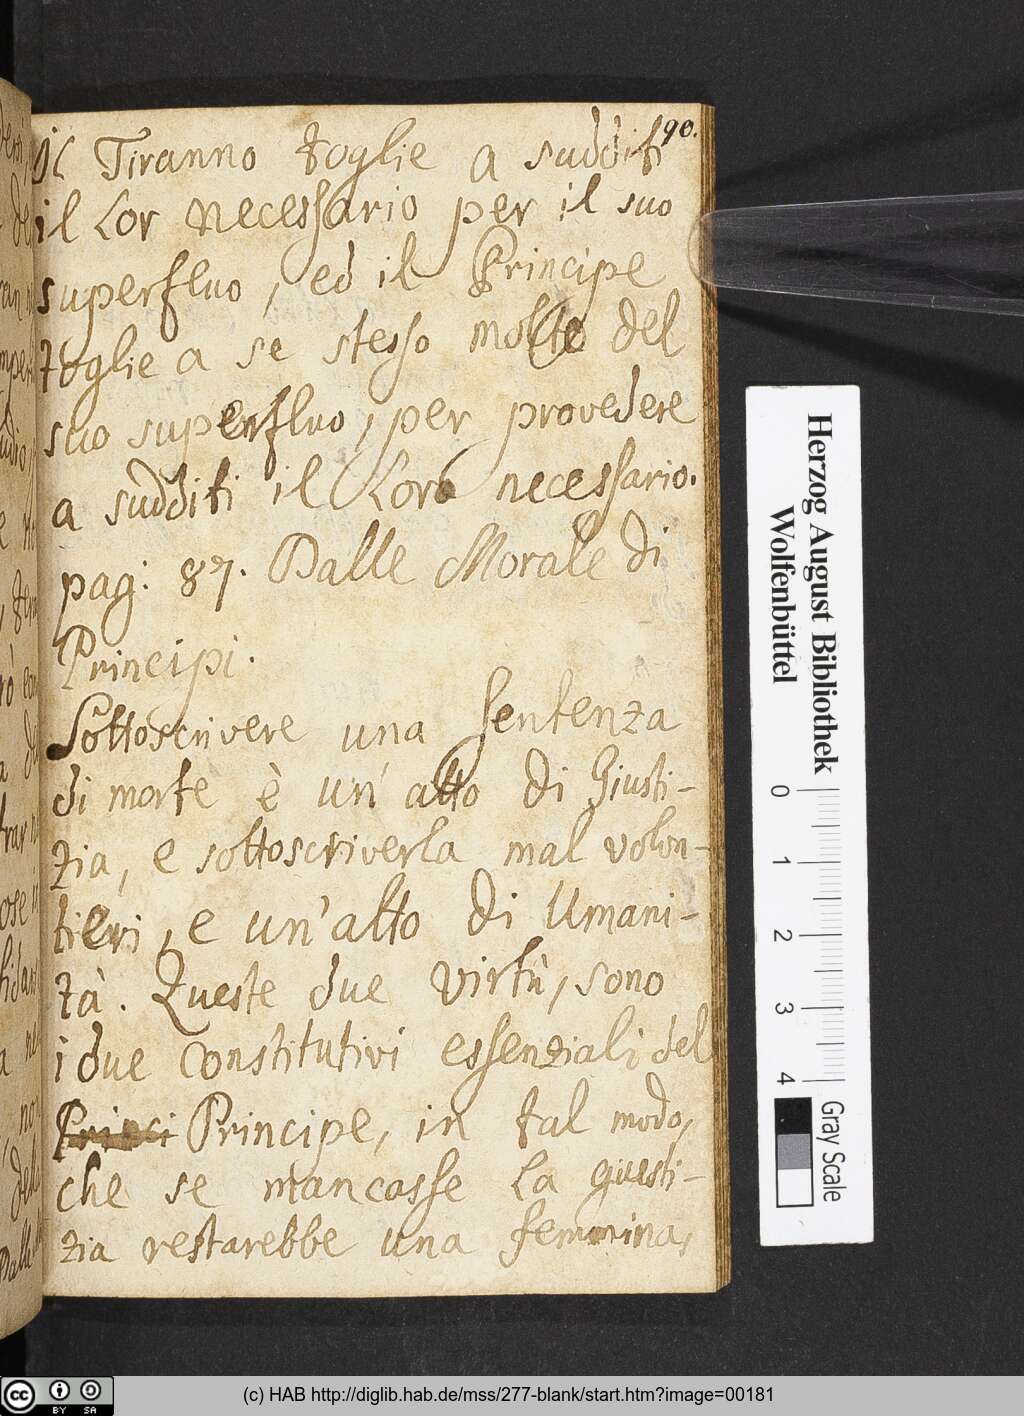 90.
Il Tiranno toglie a sudditi
il lor necessario per il suo
superfluo, ed il Principe
toglie a se stesso molto del
suo superfluo, per provedere
a sudditi il Loro necessario.
pag: 87. Dalle Morale di
Principi.
Sottoscrivere una sentenza
di morte è un' atto di Giusti-
zia, e sottoscriverla mal volon-
tieri, e un' atto di Umani-
tà. Queste due virtù, sono
i due constitutivi essenziali del
Princi Principe, in tal modo,
che se mancasse la giusti-
zia restarebbe una femmina,
Herzog August Bibliothek
Wolfenbüttel
0 1 2 3 4
Gray Scale
cc BY SA
(c) HAB http://diglib.hab.de/mss/277-blank/start.htm?image=00181